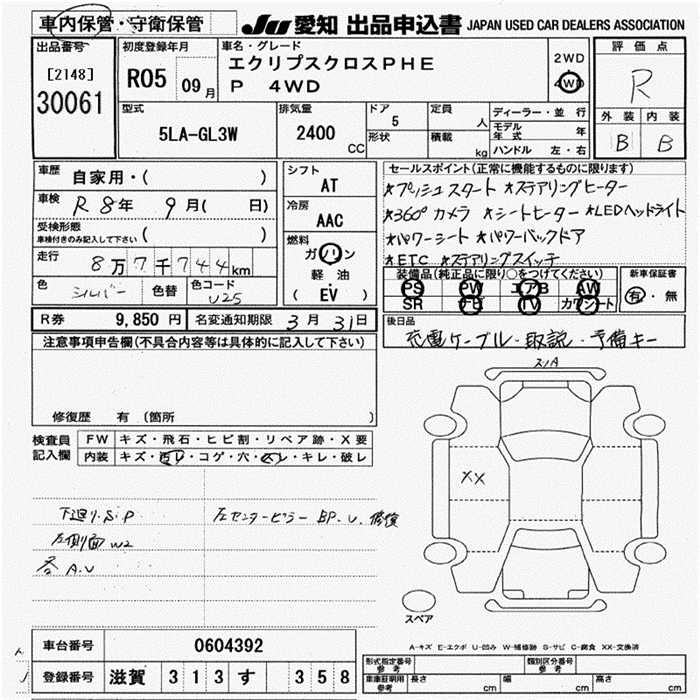 車内保管・守衛保管
JU 愛知 出品申込書 JAPAN USED CAR DEALERS ASSOCIATION
出品番号
[2148]
30061
初度登録年月
R05 09月
車名・グレード
エクリプスクロスPHE
P 4WD
2WD
4WD
評価点
R
外装 内装
B B
型式
5LA-GL3W
排気量
2400
CC
ドア
5
定員
人
形状
積載
kg
ディーラー・並行
モデル年式 年
ハンドル 左・右
車歴
自家用・( )
車検
R 8年 9月( 日)
受検形態
車検付きのみ記入して下さい ( )
走行
8万7千744km
色
シルバー
色替
色コード
U25
シフト
AT
冷房
AAC
燃料
ガソリン
軽油
( EV )
セールスポイント(正常に機能するものに限ります)
★プッシュスタート ★ステアリングヒーター
★360°カメラ ★シートヒーター ★LEDヘッドライト
★パワーシート ★パワーバックドア
★ETC ★ステアリングスイッチ
装備品(純正品に限り○をつけてください)
PS PW エアB AW
SR ナビ TV カワシート
新車保証書
有・無
R券 9,850円 名変通知期限 3月31日
後日品
充電ケーブル・取説・予備キー
注意事項申告欄(不具合内容等は具体的に記入して下さい)
修復歴 有 (箇所 )
検査員記入欄
FW キズ・飛石・ヒビ割・リペア跡・X要
内装 キズ・汚レ・コゲ・穴・スレ・キレ・破レ
下廻り.S.P
左側面 W2
各 A.U
左センターピラー BP.U.修償
スノA
XX
スペア
A-キズ E-エクボ U-凹み W-補修跡 S-サビ C-腐食 XX-交換済
車台番号 0604392
登録番号 滋賀 313 す 358
形式指定番号 参考
類別区分番号 参考
車庫証明用 参考 長さ cm 幅 cm 高さ cm